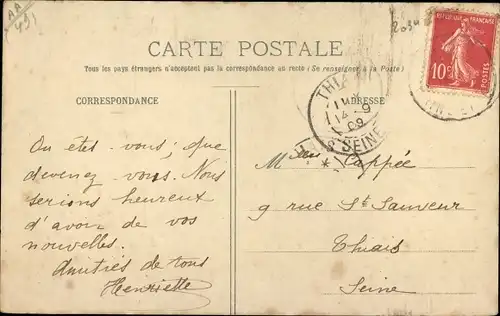 AA
491
CARTE POSTALE
Tous les pays étrangers n'acceptent pas la correspondance au recto (Se renseigner à la Poste)
CORRESPONDANCE
ADRESSE
REPUBLIQUE FRANÇAISE
10c
POSTES
THIAIS
14 -9
09
SEINE
Où êtes-vous; que
devenez vous. Nous
serions heureux
d'avoir de vos
nouvelles.
Amitiés de tous
Henriette
Cappée
9 rue St Sauveur
Thiais
Seine